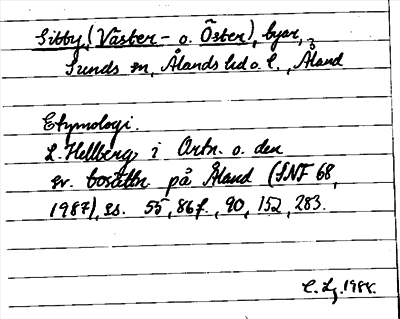 Sibby, (Väster- o. Öster), byar,
Sunds sn, Ålands hd o. l., Åland
Etymologi.
L. Hellberg i Ortn. o. den
sv. bosättn. på Åland (SNF 68,
1987), ss. 55, 86f., 90, 152, 283.
C. Lg. 1988.